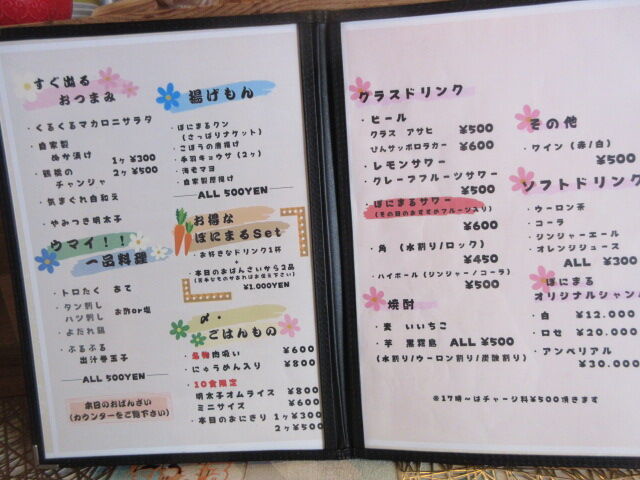 すぐ出る
おつまみ
・くるくるマカロニサラタ
・自家製
ぬか漬け 1ヶ ¥300
・鶴橋の 2ヶ ¥500
チャンジャ
・気まぐれ白和え
・やみつき明太子
ウマイ！！
一品料理
・トロたく あて
・タン刺し
・ハツ刺し お酢or塩
・よだれ鶏
・ぷるぷる
出汁巻玉子
ALL 500YEN
本日のおばんざい
(カウンターをご覧下さい)
揚げもん
・ぽにまるクン
(さっぱりナゲット)
・ごぼうの唐揚げ
・手羽ギョウザ(2ヶ)
・海老マヨ
・自家製厚揚げ
ALL 500YEN
お得な
ぽにまるSet
・お好きなドリンク1杯
+
・本日のおばんさいから2品
¥1.000YEN
〆・
ごはんもの
・名物肉吸い ¥600
・にゅうめん入り ¥800
・10食限定
明太子オムライス ¥800
ミニサイズ ¥600
・本日のおにぎり 1ヶ¥300
2ヶ¥500
グラスドリンク
・ビール
グラス アサヒ ¥500
びんサッポロラガー ¥600
・レモンサワー
・グレープフルーツサワー
¥500
・ぽにまるサワー
(その日のおすすめフルーツ入り)
¥600
・角 (水割り/ロック)
¥450
・ハイボール (ジンジャー/コーラ)
¥500
焼酎
・麦 いいちこ
・芋 黒霧島 ALL ¥500
(水割り/ウーロン割り/炭酸割り)
その他
・ワイン (赤/白)
¥500
ソフトドリンク
・ウーロン茶
・コーラ
・ジンジャーエール
・オレンジジュース
ALL ¥300
ぽにまる
オリジナルシャン
・白 ¥12.000
・ロゼ ¥20.000
・アンペリアル
¥30.000
※17時～はチャージ料¥500頂きます